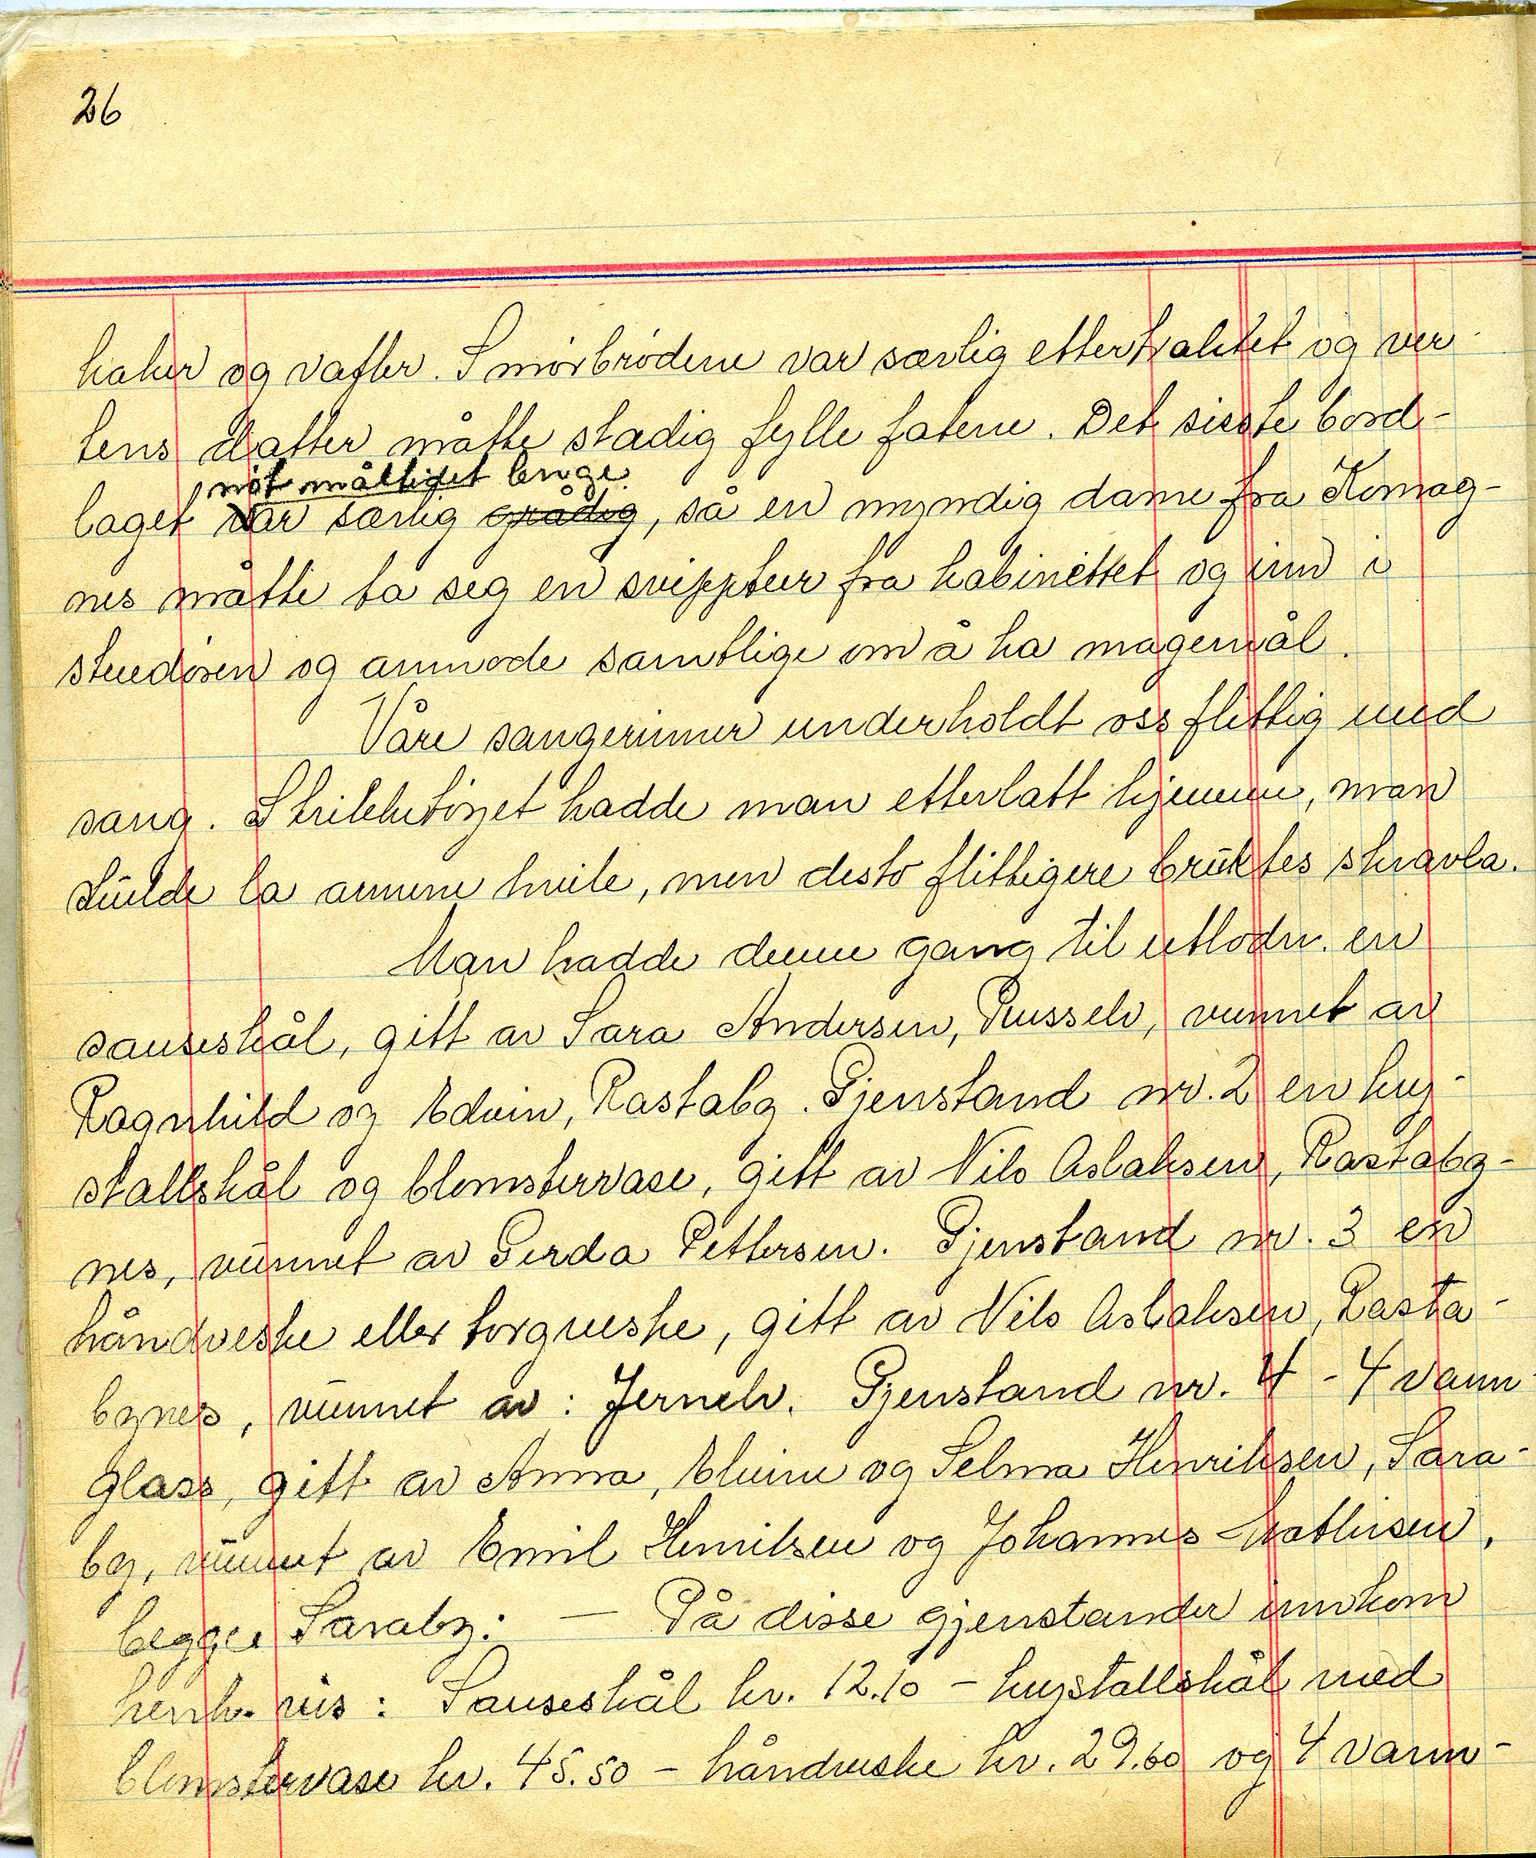 26
kaker og vafler. Smörbrödene var særlig ettertraktet og ver-
tens datter måtte stadig fylle fatene. Det sisste bord-
nöt måltidet lenge
laget var særlig grådig, så en myndig dame fra Komag-
nes måtte ta seg en svipptur fra kabinettet og inn i
stuedören og anmode samtlige om å ha magemål.
Våre sangerinner underholdt oss flittig med
sang. Strikketöyet hadde man etterlatt hjemme, man
skulde la armene hvile, men desto flittigere bruktes skravla.
Man hadde denne gang til utlodn. en
sauseskål, gitt av Sara Andersen, Russelv, vunnet av
Ragnhild og Edvin, Rastaby. Gjenstand nr. 2 en kry-
stallskål og blomstervase, gitt av Nils Aslaksen, Rastaby-
nes, vunnet av Gerda Pettersen. Gjenstand nr. 3 en
håndveske eller torgveske, gitt av Nils Aslaksen, Rasta-
bynes, vunnet av: Jernelv. Gjenstand nr. 4 - 4 vann-
glass, gitt av Anna, Elvine og Selma Henriksen, Sara-
by, vunnet av Emil Henriksen og Johannes Mathisen,
begge Saraby. — På disse gjenstander innkom
henh. vis: Sauseskål kr. 12.10 - krystallskål med
blomstervase kr. 45.50 - håndveske kr. 29.60 og 4 vann-